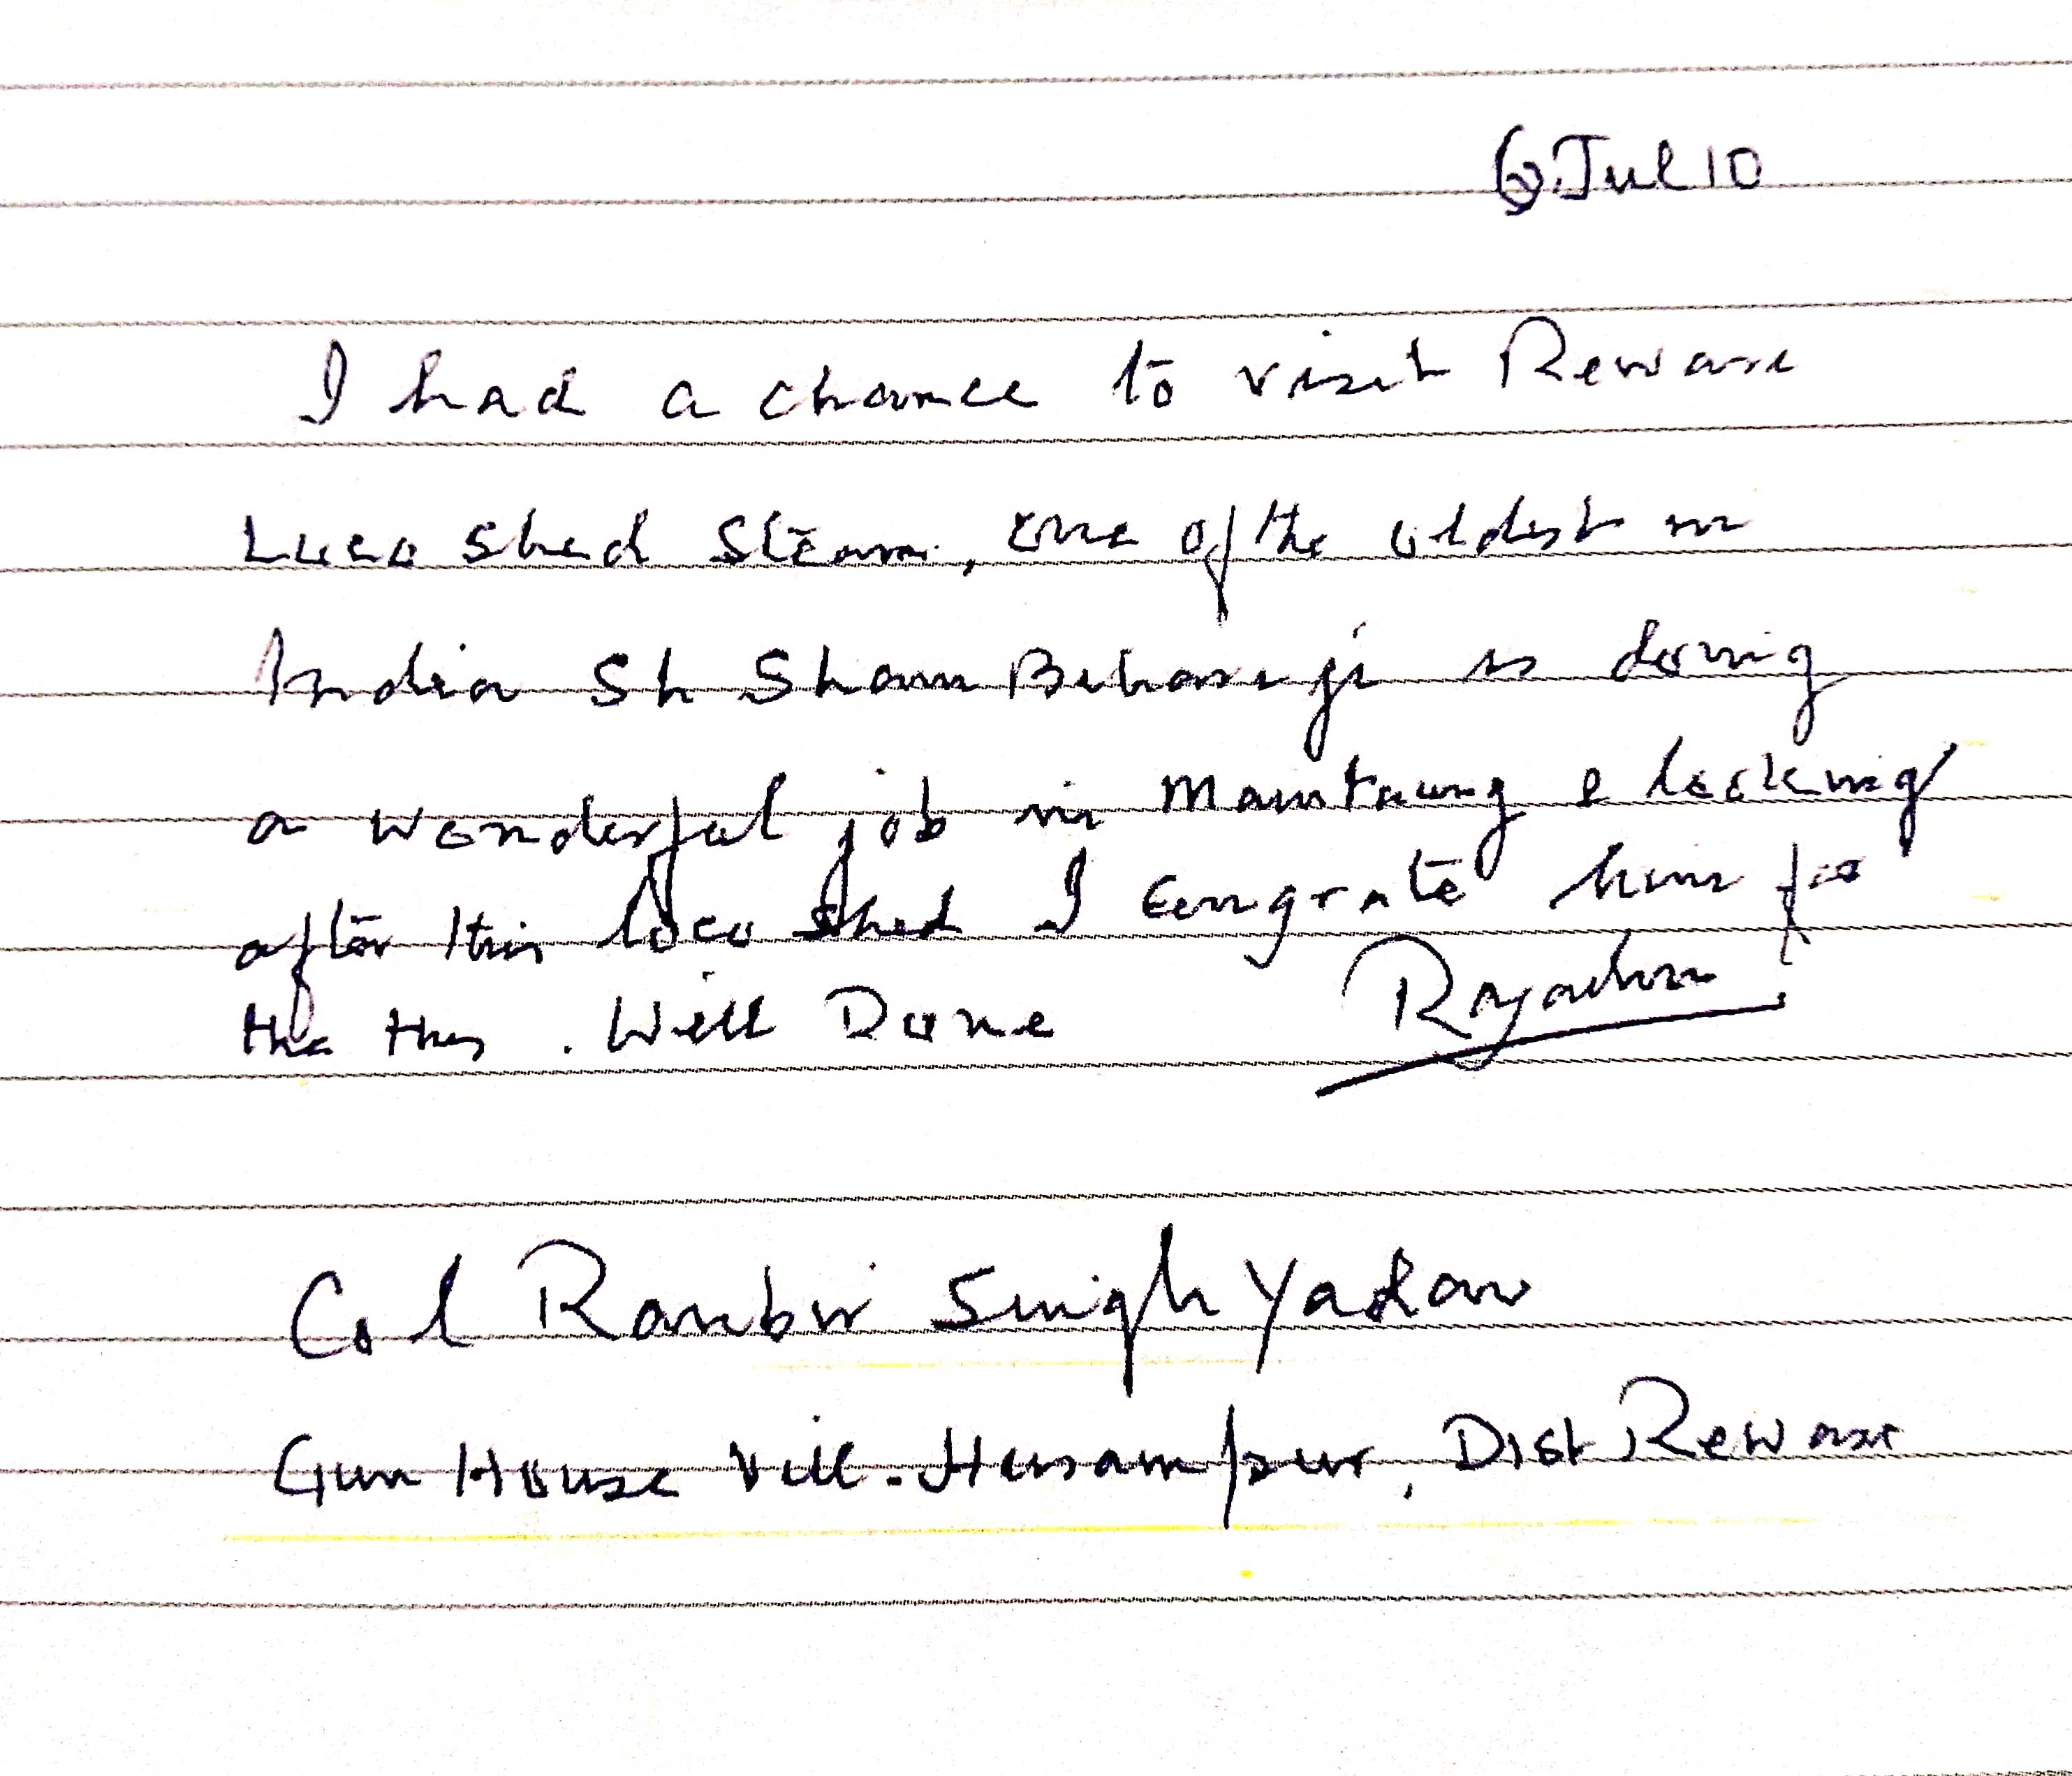 6 Jul 10
I had a chance to visit Rewari
Loco Shed Steam, one of the oldest in
India Sh Sham Behari ji is doing
a wonderful job in Maintaing & looking
after this loco shed I Congrate him for
the this. Well Done
Col Ranbir Singh Yadav
Gun House Vill. Husampur, Dist Rewari